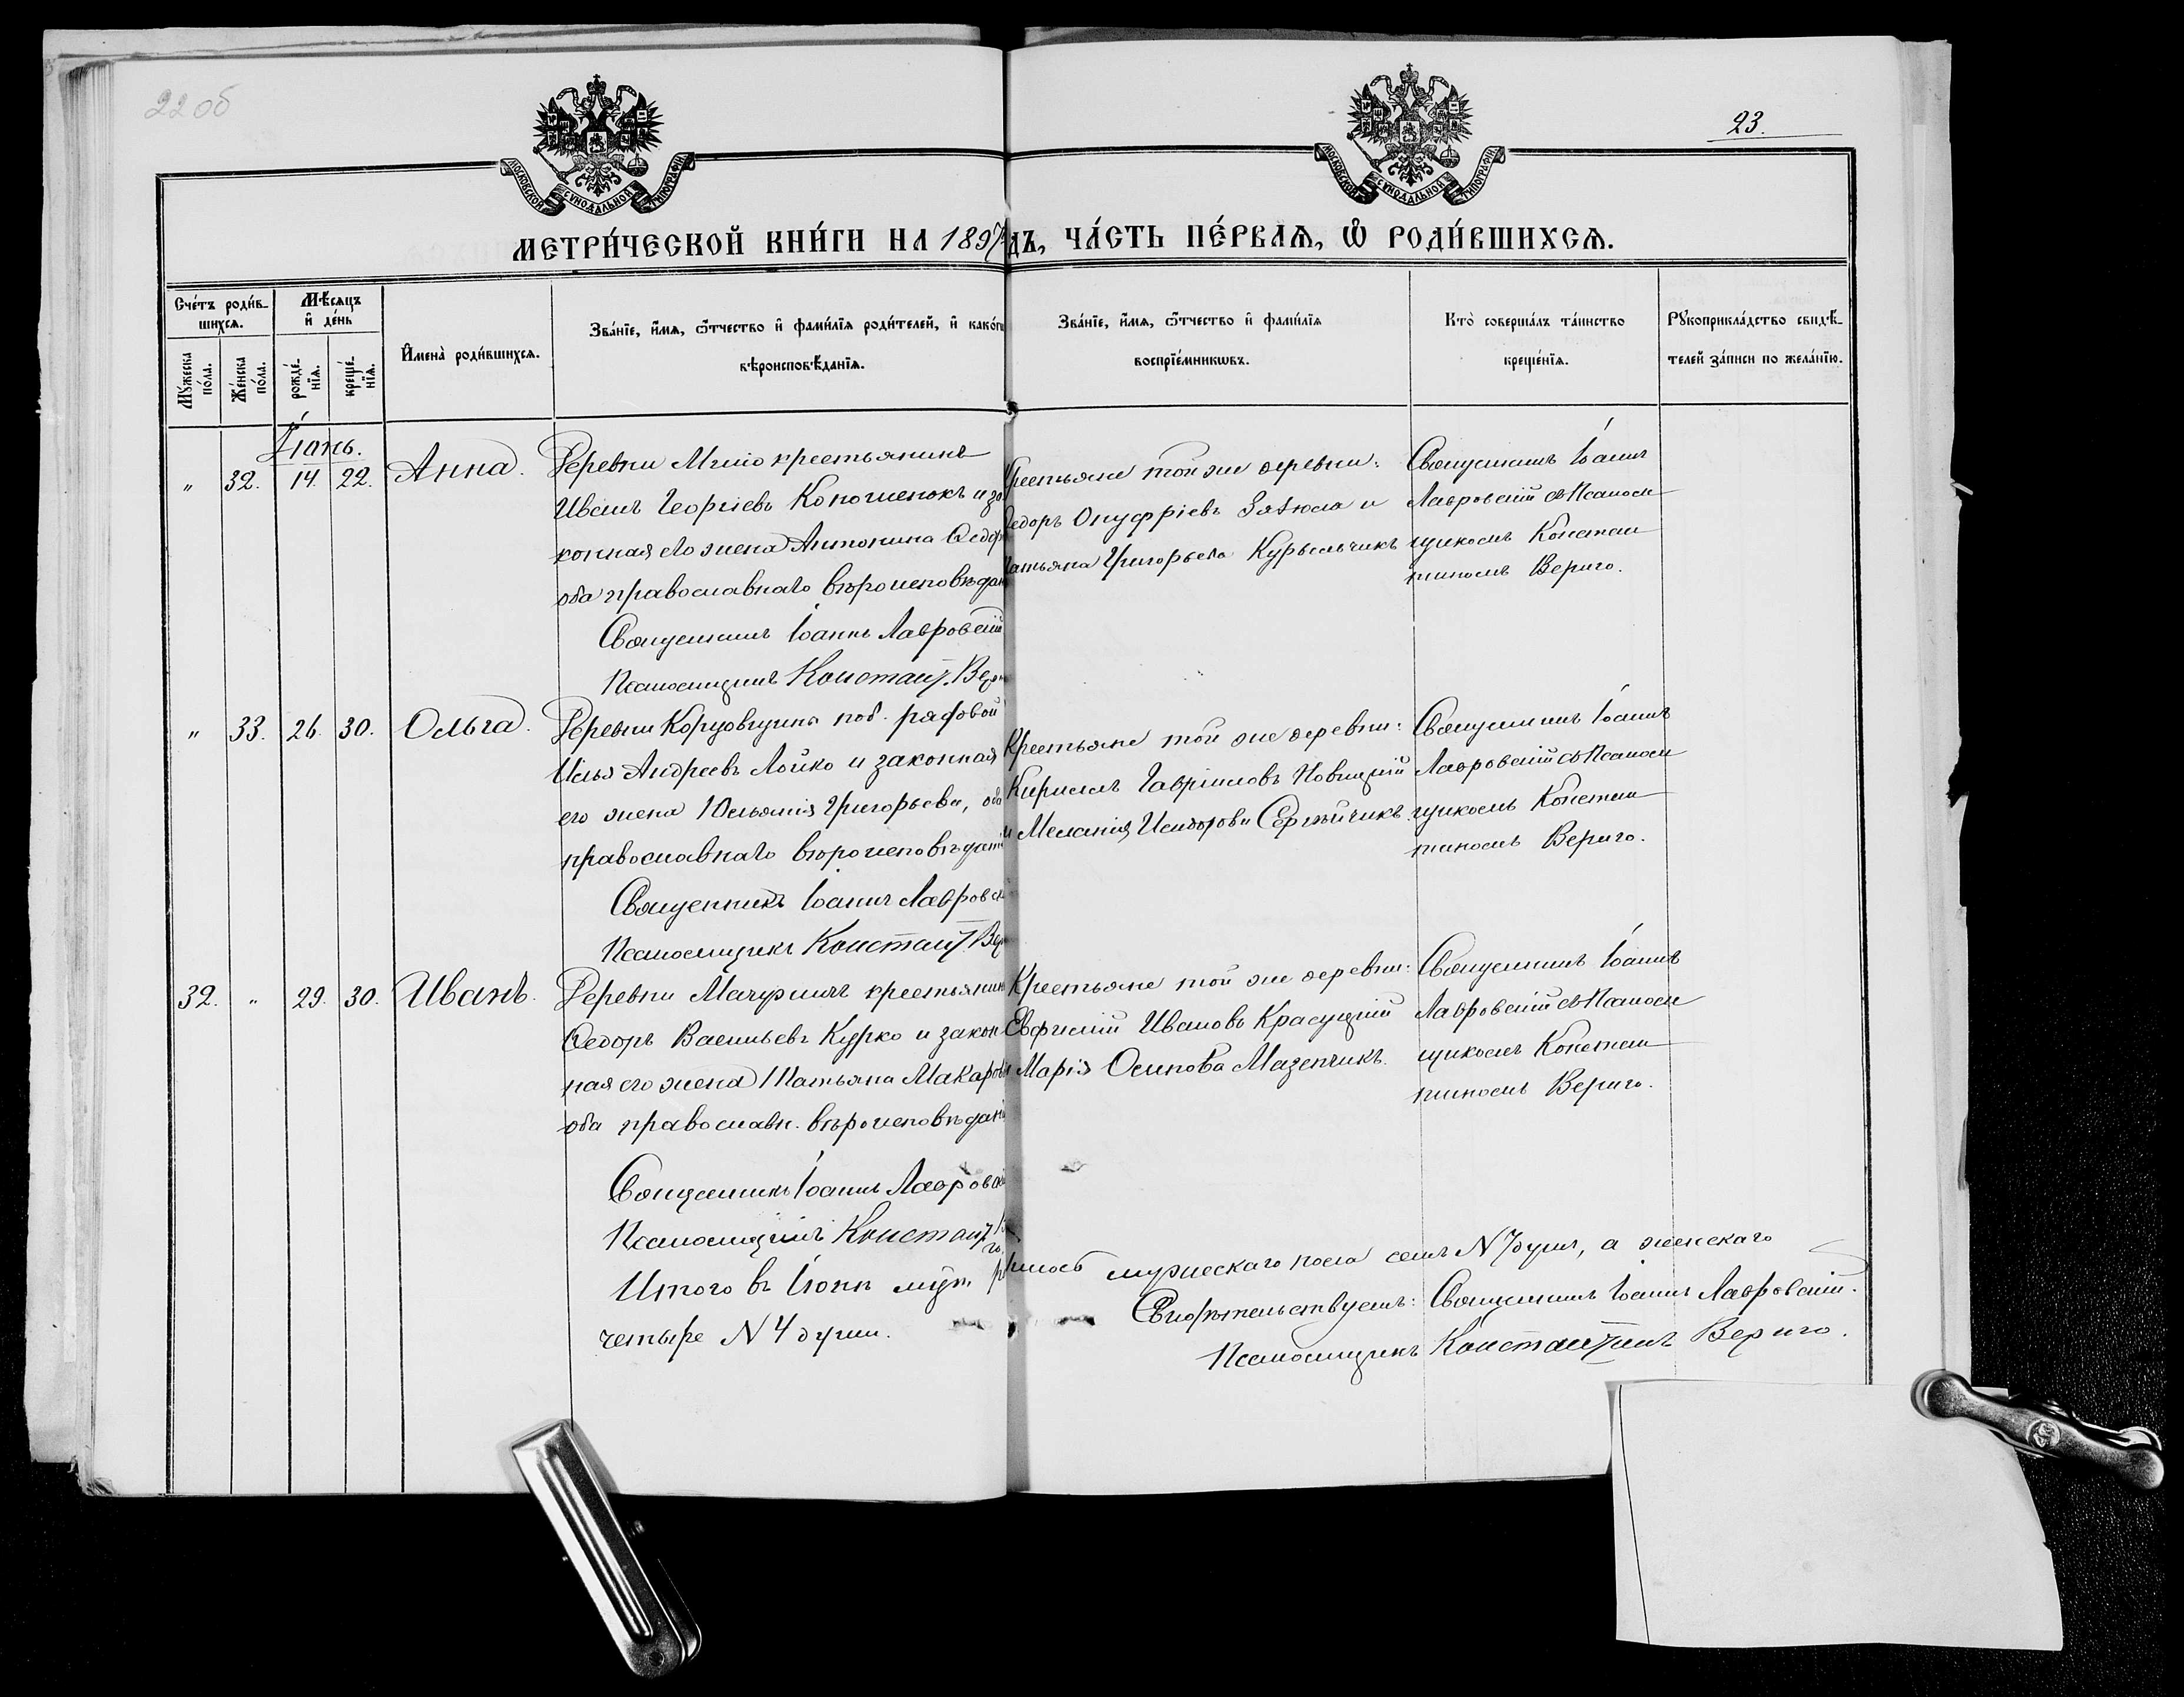 22 об
23.
МОСКОВСКОЙ СУНОДАЛЬНОЙ ТИПОГРАФИИ
МОСКОВСКОЙ СУНОДАЛЬНОЙ ТИПОГРАФИИ
МЕТРИ́ЧЕСКОЙ КНИ́ГИ НА 1897 ДЪ, ЧА́СТЬ ПЕ́РВАѦ, Ѽ РОДИ́ВШИХСѦ.
Сче́тъ роди́в-
шихсѧ.
Мѣ́сѧцъ
и҆ де́нь
Мꙋ́жеска
по́ла.
Же́нска
по́ла.
рожде́-
нїѧ.
креще́-
нїѧ.
И҆мена̀ роди́вшихсѧ.
Зва́нїе, и҆́мѧ, ѻ҆́тчество и҆ фами́лїѧ роди́телей, и҆ како́гѡ
вѣроисповѣ́данїѧ.
Зва́нїе, и҆́мѧ, ѻ҆́тчество и҆ фами́лїѧ
воспрїе́мникѡвъ.
Кто̀ соверша́лъ та́инство
креще́нїѧ.
Рꙋкоприкла́дство свидѣ́-
телей за́писи по жела́нїю.
Іюнь.
" 32. 14. 22. Анна.
Деревни крестьянинъ
Иванъ Георгіевъ и за
конная его жена Антонина Ѳедор
оба православнаго вѣроисповѣдан
Священникъ Іоаннъ Лавровскій
Псаломщикъ Констант. Вер
Крестьяне той же деревни:
Ѳедоръ Онуфріевъ и
Татьяна Григорьева Курыльчикъ
Священникъ Іоаннъ
Лавровскій съ псаломи
щикомъ Констан
тиномъ Вериго.
" 33. 26. 30. Ольга.
Деревни рядовой
Илья Андреевъ Лойко и законная
его жена Юльянія Григорьева, оба
православнаго вѣроисповѣдан
Священникъ Іоаннъ Лавровск
Псаломщикъ Констант. Вер
Крестьяне той же деревни:
Кириллъ Гавріиловъ Новицкій
и Меланія Исидорова Сергѣйчикъ.
Священникъ Іоаннъ
Лавровскій съ псаломи
щикомъ Констан
тиномъ Вериго.
32. " 29. 30. Иванъ.
Деревни крестьянинъ
Ѳедоръ Васильевъ Курко и закон
ная его жена Татьяна Макарова
оба православн. вѣроисповѣдан
Священникъ Іоаннъ Лавровск
Псаломщикъ Констант.
Крестьяне той же деревни:
Евфимій Ивановъ Красуцкій
и Марія Осипова Мазепчикъ.
Священникъ Іоаннъ
Лавровскій съ псаломи
щикомъ Констан
тиномъ Вериго.
Итого въ Іюнѣ мѣс. ро дилось мужескаго пола семь N 7 душъ, а женскаго
четыре N 4 души.
Свидѣтельствуемъ: Священникъ Іоаннъ Лавровскій.
Псаломщикъ Константинъ Вериго.